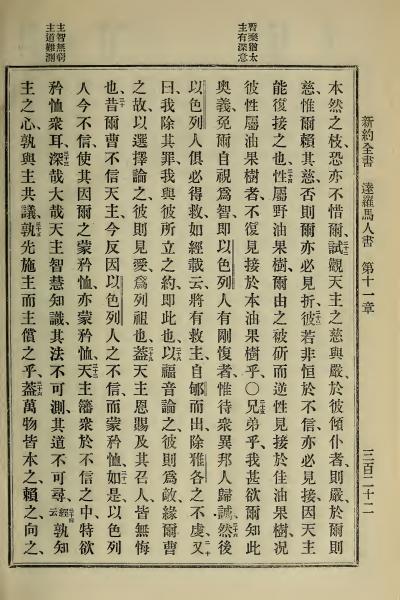 暫棄猶太
主有深意
主智無窮
主道難測
新約全書 達羅馬人書 第十一章 三百二十二
本然之枝、恐亦不惜爾、試觀天主之慈與嚴、於彼傾仆者、則嚴於爾則
慈、惟爾賴其慈、否則爾亦必見折、彼若非恒於不信、亦必見接、因天主
能復接之也、性屬野油果樹、爾由之被斫、而逆性見接於佳油果樹、况
彼性屬油果樹者、不復見接於本油果樹乎、○兄弟乎、我甚欲爾知此
奥義、免爾自視爲智、卽以色列人有剛愎者、惟待衆異邦人歸誠、然後
以色列人俱必得救、如經載云、將有救主、自郇而出、除雅各之不虔、又
曰、我除其罪、我與彼所立之約、卽此也、以福音論之、彼則爲敵、緣爾曹
之故、以選擇論之、彼則見愛、爲列祖也、蓋天主恩賜及其召人、皆無悔
也、昔爾曹不信天主、今反因以色列人之不信、而蒙矜恤、如是以色列
人今不信、使其因爾之蒙矜恤、亦蒙矜恤、天主籓衆於不信之中、特欲
矜恤衆耳、深哉大哉、天主智慧知識、其法不可測、其道不可尋、經云孰知
主之心、孰與主共議、孰先施主而主償之乎、蓋萬物皆本之、賴之、向之、